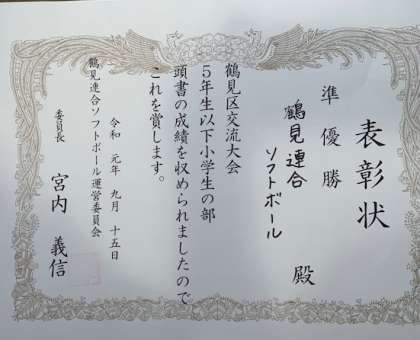 表彰状
準優勝
鶴見連合
ソフトボール
殿
鶴見区交流大会
5年生以下小学生の部
頭書の成績を収められましたので
これを賞します。
令和 元年 九月 十五日
鶴見連合ソフトボール運営委員会
委員長 宮内 義信